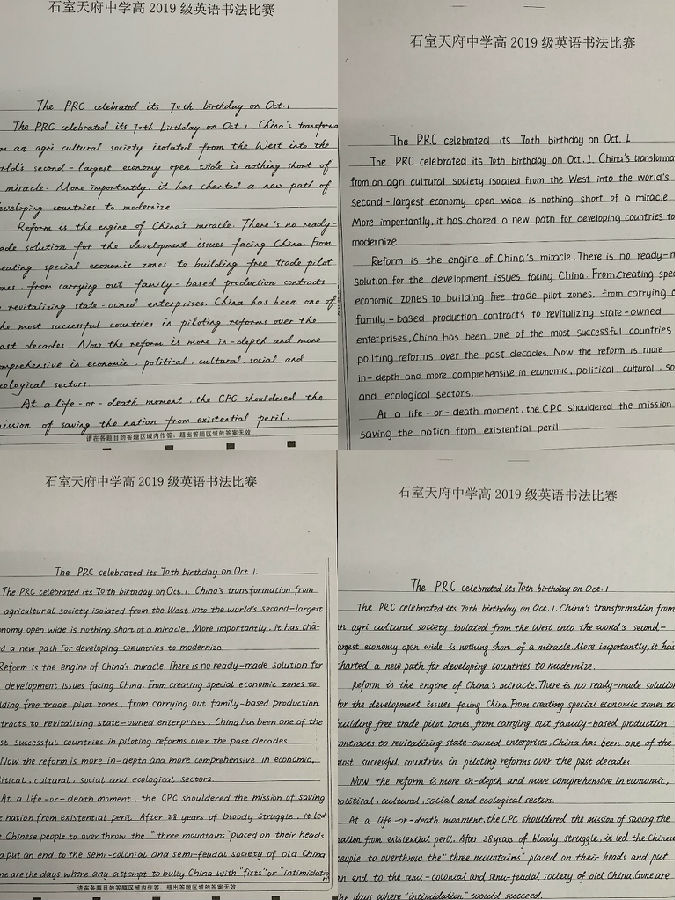 石室天府中学高2019级英语书法比赛
The PRC celebrated its 70th birthday on Oct.1
The PRC celebrated its 70th birthday on Oct 1 China's transforma
an agri cultural society isolated from the West into the
world's second-largest economy open wide is nothing short of
miracle. More importantly it has charted a new path of
developing countries to modernize
Reform is the engine of China's miracle. There's no ready-
ade solution for the development issues facing China From
eating special economic zones to building free trade pilot
ones, from carrying out family-based production contracts
revitalizing state-owned enterprises. China has been one of
the most successful countries in piloting reforms over the
past decades Now the reform is more in-depth and more
mprehensive is economic, political, cultural, social and
cological sectors.
At a life-or-death moment, the CPC shouldered the
ission of saving the nation from existential peril.
请在各题目的答题区域内作答，超出答题区域的答案无效
石室天府中学高2019级英语书法比赛
The PRC celebrated its 70th birthday on Oct. 1.
The PRC celebrated its 70th birthday on Oct.1. China's transformat
from an agri cultural society isolated from the West into the world's
second-largest economy open wide is nothing short of a miracle
More importantly, it has chared a new path for developing countries to
modernize
Reform is the engine of China's miracle There is no ready-m
solution for the development issues facing China. From creating spec
economic zones to building free trade pilot zones, from carrying o
family-based production contracts to revitalizing state-owned
enterprises, China has been one of the most successful countries
piloting reforms over the past decades. Now the reform is more
in-depth and more comprehensive in economic, political cultural, so
and ecological sectors.
At a life-or-death moment, the CPC shouldered the mission
saving the nation from existential peril
石室天府中学高2019级英语书法比赛
The PRC celebrated its 70th birthday on Oct 1.
The PRC celebrated its 70th birthday on Oct.1. China's transformation from
agricultural society isolated from the West into the world's second-largest
onomy open wide is nothing short of a miracle. More importantly, it has cha-
d a new path for developing countries to modernize.
Reform is the engine of China's miracle There is no ready-made solution for
development issues facing China. From creating special economic zones to
lding free trade pilot zones, from carrying out family-based production
tracts to revitalizing state-owned enterprises, China has been one of the
st successful countries in piloting reforms over the past decades
Now the reform is more in-depth and more comprehensive in economic,
litical, cultural, social and ecological sectors.
At a life-or-death moment, the CPC shouldered the mission of saving
nation from existential peril. After 28 years of bloody struggle, it led
e Chinese people to over throw the "three mountain" placed on their heads
put an end to the semi-colonial and semi-feudal society of old China
ne are the days where any attempt to bully China with "fist" or "intimidatio
请在各题目的答题区域内作答，超出答题区域的答案无效
石室天府中学高2019级英语书法比赛
The PRC celebrated its 70th birthday on Oct.1
The PRC celebrated its 70th birthday on Oct.1. China's transformation from
an agri cultural society isolated from the West into the world's second-
largest economy open wide is nothing short of a miracle. More importantly, it has
harted a new path for developing countries to modernize.
Reform is the engine of China's miracle. There is no ready-made solution
for the development issues facing China. From creating special economic zones to
building free trade pilot zones, from carrying out family-based production
ontracts to revitalizing state-owned enterprises, China has been one of the
ost successful countries in piloting reforms over the past decades
Now the reform is more in-depth and more comprehensive in economic,
political, cultural, social and ecological sectors.
At a life-or-death moment, the CPC shouldered the mission of saving the
nation from existential peril. After 28 years of bloody struggle, it led the Chinese
people to overthrow the "three mountains" placed on their heads and put
an end to the semi-colonial and semi-feudal society of old China. Gone are
the days where "intimidation" would succeed.